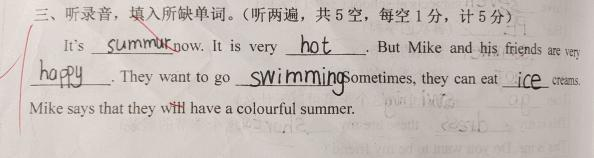 三、听录音，填入所缺单词。（听两遍，共 5 空，每空 1 分，计 5 分）
It's summur now. It is very hot. But Mike and his friends are very
happy. They want to go swimming. Sometimes, they can eat ice creams.
Mike says that they will have a colourful summer.